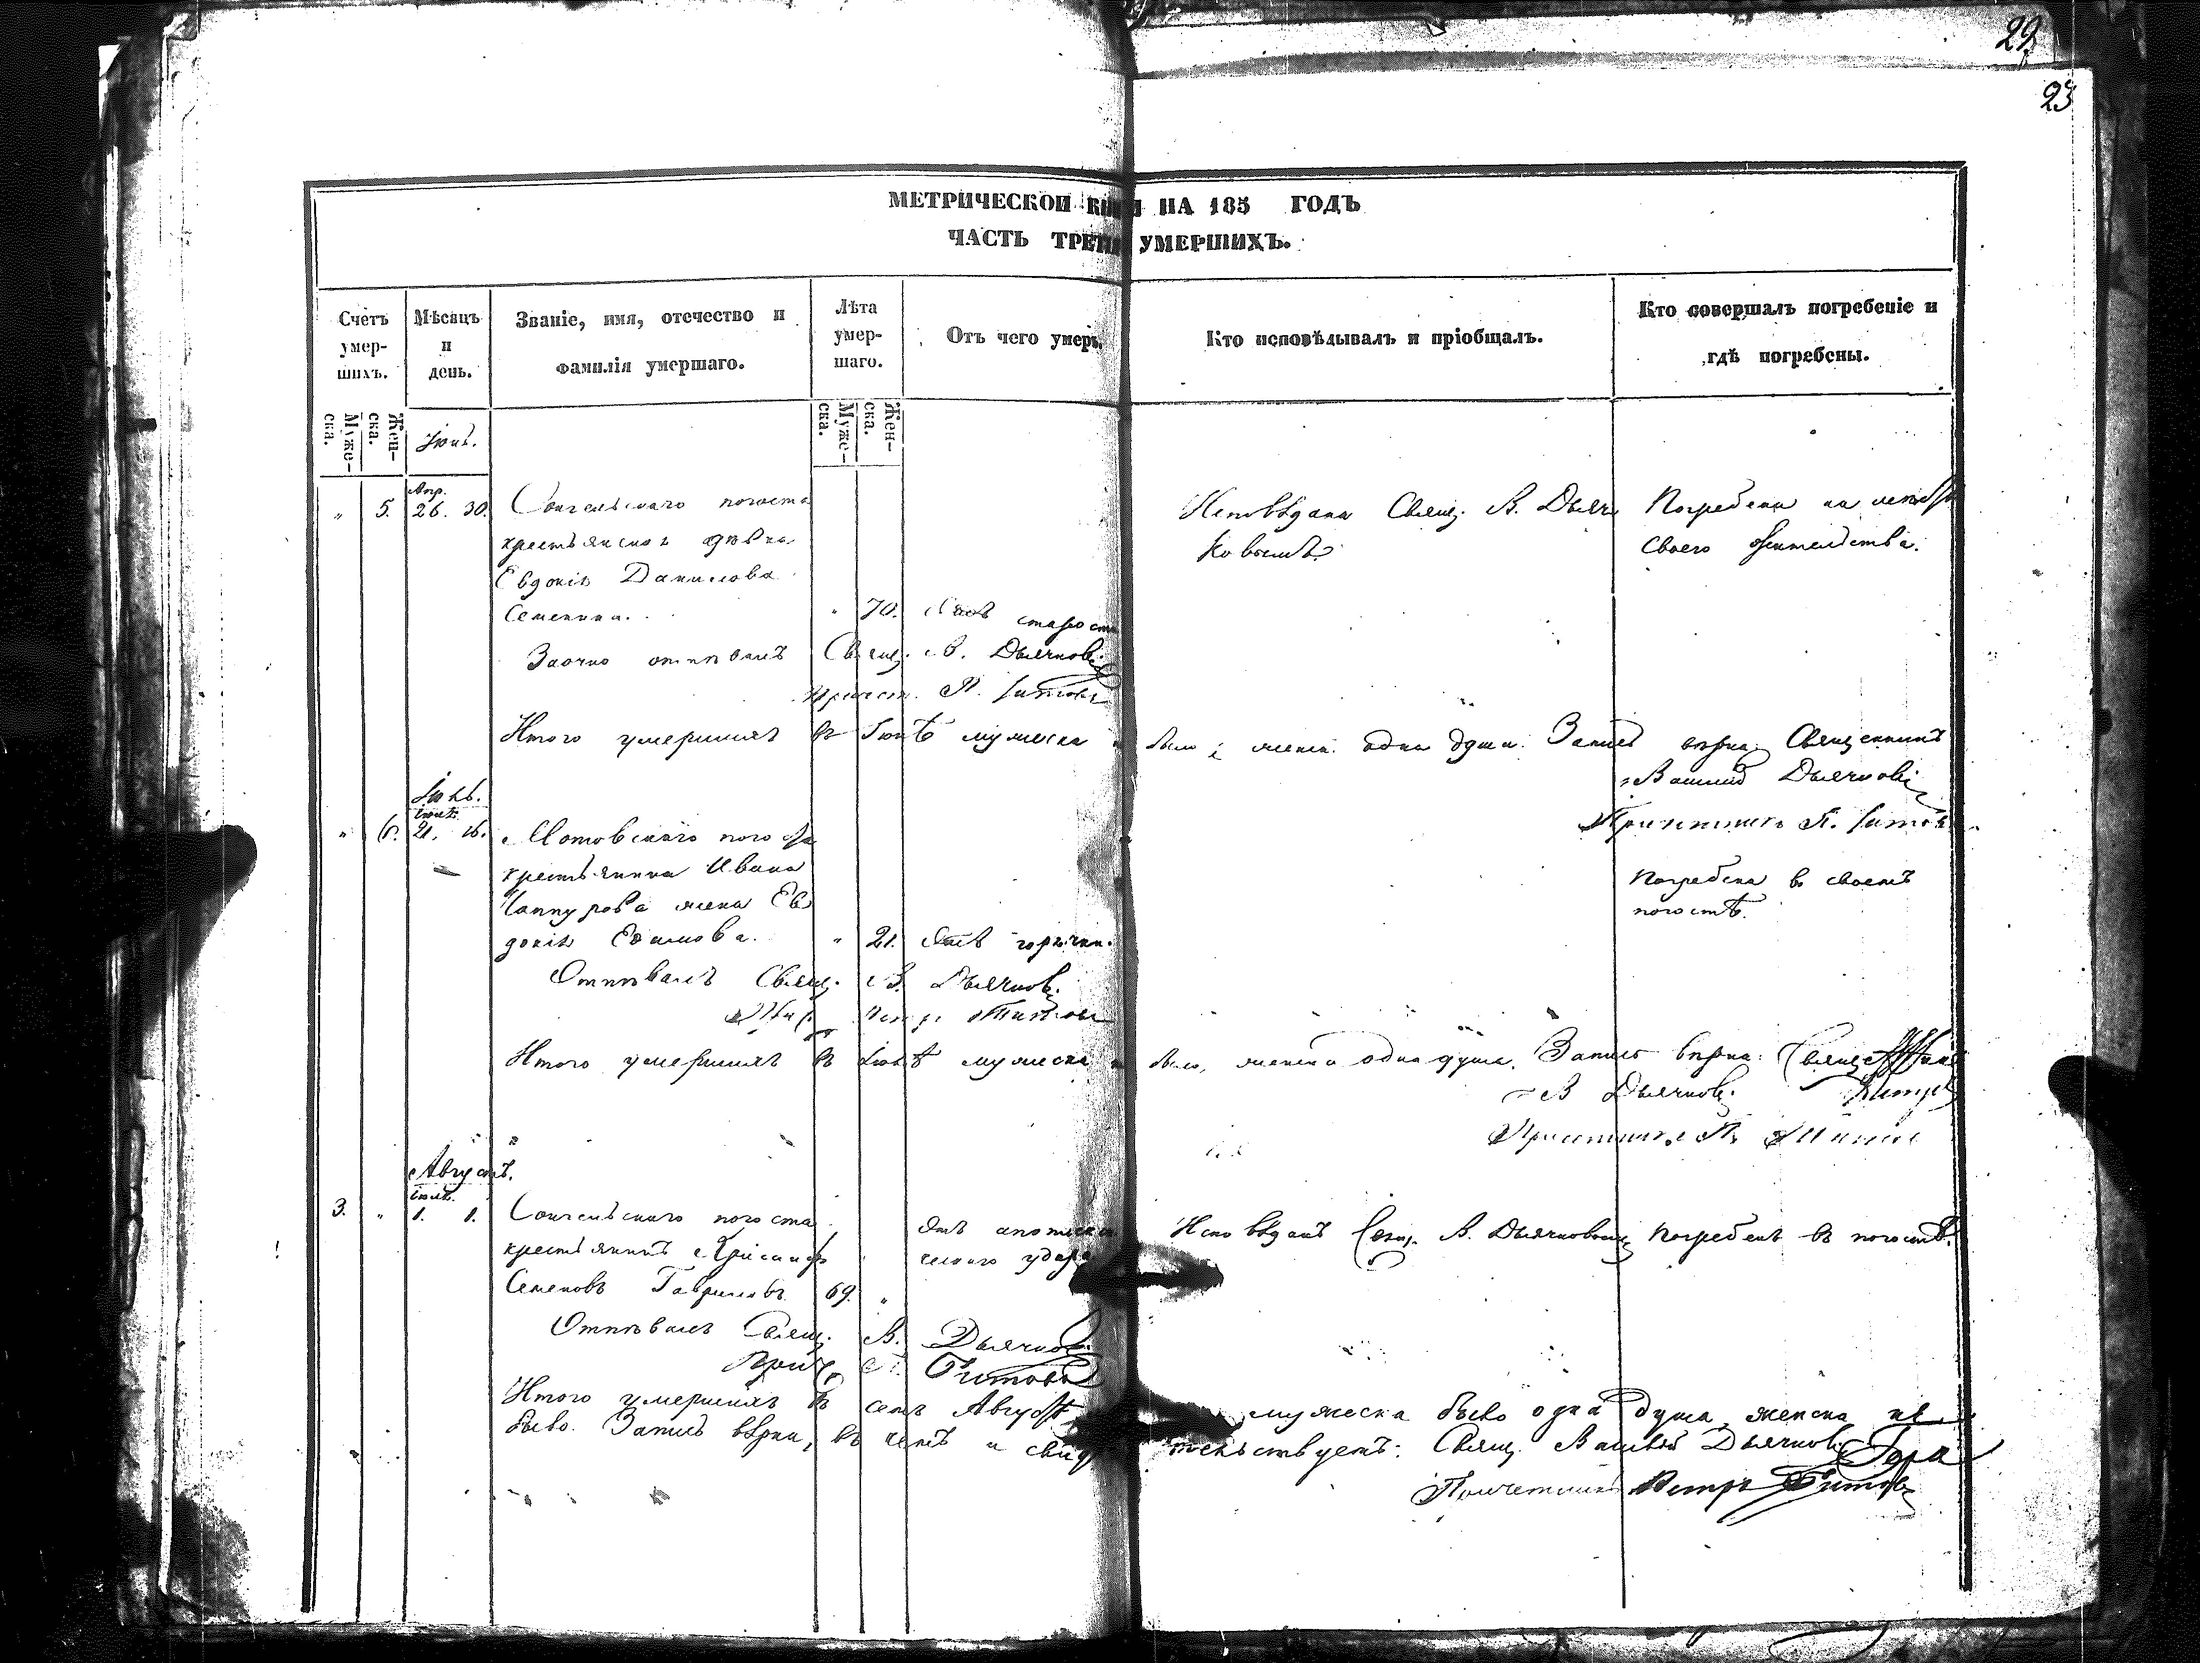 29
23
МЕТРИЧЕСКОЙ КНИ НА 185 ГОДЪ
ЧАСТЬ ТРЕТІ УМЕРШИХЪ.
Счетъ умер-шихъ.
Мѣсяцъ и день.
Званіе, имя, отечество и фамилія умершаго.
Лѣта умер-шаго.
Отъ чего умеръ.
Кто исповѣдывалъ и пріобщалъ.
Кто совершалъ погребеніе и гдѣ погребены.
Муже-ска.
Жен-ска.
Муже-ска.
Жен-ска.
Іюнь.
Апр.
" 5. 26. 30. Сонгельскаго погоста
крестьянская дѣвка
Евдокія Данилова
Семенина. " 70. Отъ старости
Исповѣдана Свящ. В. Дьяч
ковымъ.
Погребена на мѣстѣ
своего жительства.
Заочно отпѣвалъ Свящ. В. Дьячковъ
Причетн. П. Титовъ
Итого умершихъ въ Іюнѣ мужеска н было, женска одна душа. Запись вѣрна: Священникъ
Василій Дьячковъ
Причетникъ П. Титовъ
Іюль.
Іюнь.
" 6. 21. 16. Мотовскаго погоста
крестьянина Ивана
жена Ев
докія " 21. Отъ горячки.
Погребена въ своемъ
погостѣ.
Отпѣвалъ Свящ. В. Дьячковъ.
Прич. Петръ Титовъ
Итого умершихъ въ Іюлѣ мужеска н было, женска одна душа. Запись вѣрна:
В Дьячковъ.
Причетникъ П. Титовъ
Августъ.
Іюль.
3. " 1. 1. Сонгельскаго погоста
крестьянинъ Хрисанфъ
Семеновъ Гавриловъ 69. "
Отъ апоплекси
ческаго удара
Исповѣданъ Свящ. В. Дьячковымъ
Погребенъ въ погостѣ.
Отпѣвалъ Свящ. В. Дьячковъ
Прич. П. Титовъ
Итого умершихъ въ семъ Августѣ мужеска было одна душа, женска не
было. Запись вѣрна, въ чемъ и свидѣтельствуетъ: Свящ. Василій Дьячковъ
Причетникъ Петръ Титовъ